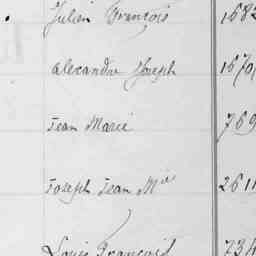 Julien François 1682
Alexandre Joseph 1670
Jean Marie 769
Joseph Jean Mie 2611
Louis François 734